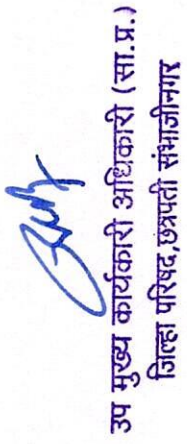 उप मुख्य कार्यकारी अधिकारी (सा.प्र.)
जिल्हा परिषद,छत्रपती संभाजीनगर